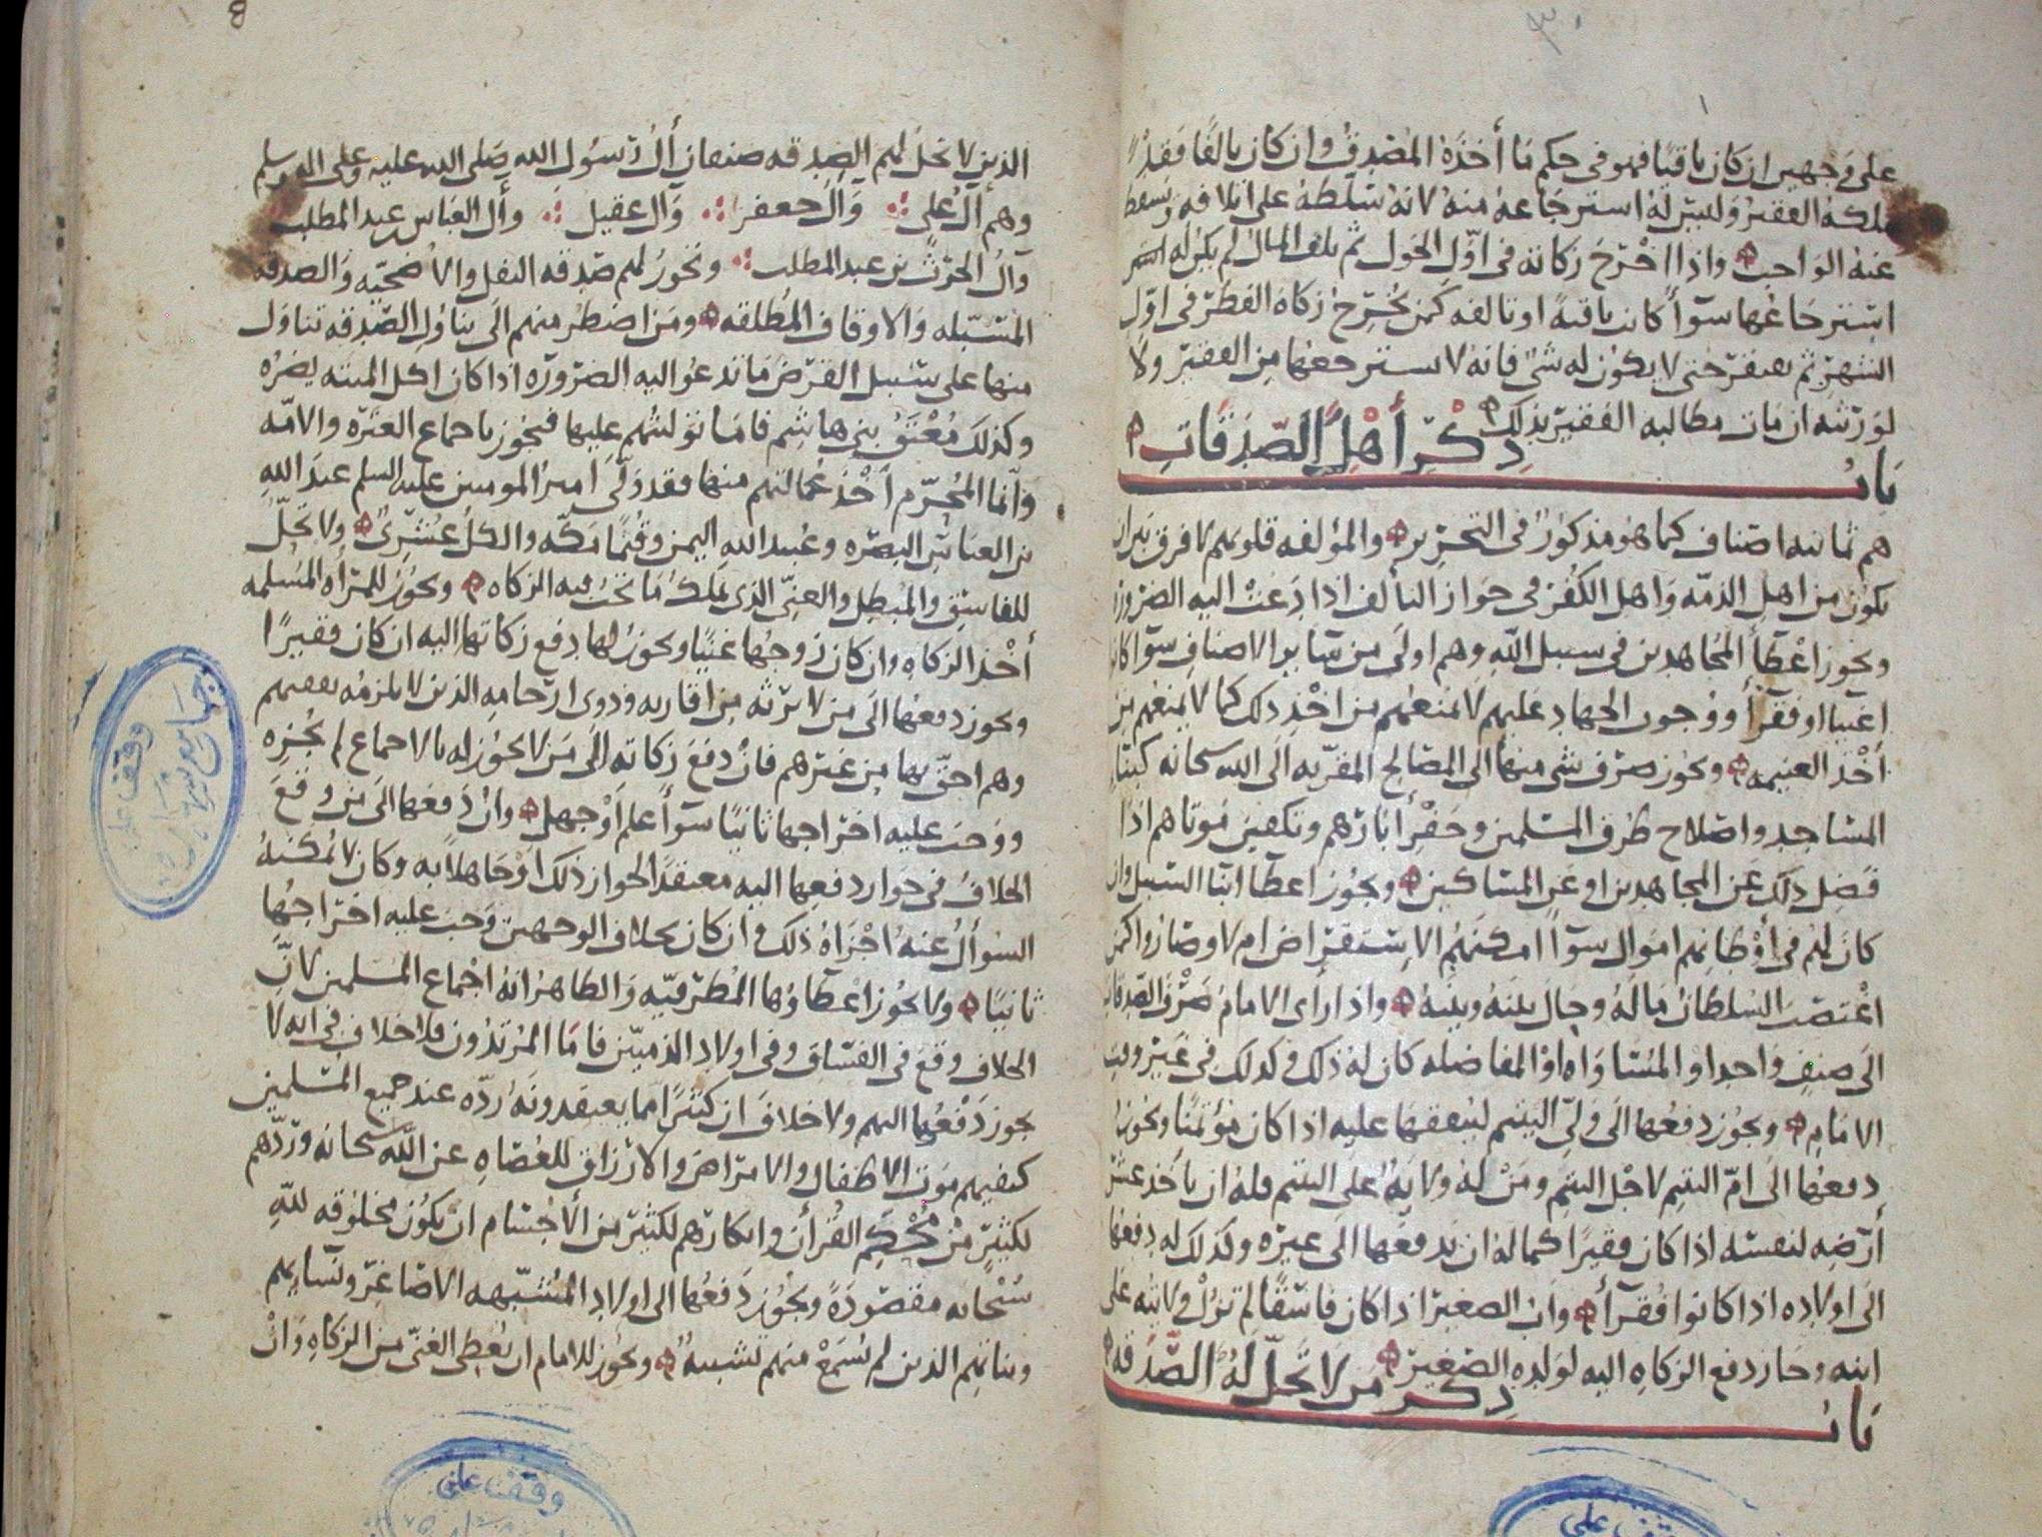 على وجهين ان كان باقيا فهو في حكم ما أخذه المصدق وان كان تالفا فقد
ملكه الفقير وليس له استرجاعه منه لانه سلطه على اتلافه وتسقط
عنه الواجب واذا اخرج زكاته في اول الحول ثم تلف المال لم يكن له
استرجاعها سوآ كانت باقية او تالفه كمن يخرج زكاة الفطر في اول
الشهر ثم يفتقر حتى لا يكون له شي فانه لا يسترجعها من الفقير ولا
لورثته ان مات مطالبه الفقير بذلك
باب ذكر أهل الصدقات
هم ثمانيه اصناف كما هو مذكور في التحرير والمؤلفه قلوبهم لا فرق بين ان
يكون من اهل الذمه واهل الكفر في جواز التألف اذا دعت اليه الضرورة
ويجوز اعطآ المجاهدين في سبيل الله وهم اولى من سائر الاصناف سوآ كانوا
اغنيا او فقرآ ووجوب الجهاد عليهم لا يمنعهم من اخذ ذلك كما لا يمنعهم من
أخذ الغنيمه ويجوز صرف شي منها الى المصالح المقربه الى الله سبحانه كبنآ
المساجد واصلاح طرق المسلمين وحفر أبارهم وتكفين موتاهم اذا
فضل ذلك عن المجاهدين او عن المساكين ويجوز اعطآ ابنا السبيل وان
كان لهم في أوطانهم اموال سوآ امكنهم الاستقراض ام لا وصاروا كمن
اغتصب السلطان ماله وحال بينه وبينه واذا رأى الامام صرف الصدقات
الى صنف واحد او المساواه او المفاضله كان له ذلك وكذلك في غير وقت
الامام ويجوز دفعها الى ولي اليتيم لينفقها عليه اذا كان مؤتمنا ويجوز
دفعها الى ام اليتيم لاجل اليتيم ومن له ولاية على اليتيم فله ان ياخذ عشر
أرضه لنفسه اذا كان فقيرا كما له ان يدفعها الى غيره وكذلك له دفعها
الى اولاده اذا كانوا فقرآ واب الصغير اذا كان فاسقا لم تزل ولايته على
ابنه وجاز دفع الزكاه اليه لولده الصغير
باب ذكر من لا تحل له الصدقه
الذين لا تحل لهم الصدقه صنفان أل رسول الله صلى الله عليه وعلى اله وسلم
وهم آل علي وآل جعفر وآل عقيل وأل العباس بن عبد المطلب
وآل الحرث بن عبد المطلب وتجوز لهم صدقه النفل والاضحيه والصدقه
المسبله والاوقاف المطلقه ومن اضطر منهم الى تناول الصدقه تناول
منها على سبيل القرض ما تدعو اليه الضروره اذا كان اكل الميته يضره
وكذلك معتق بني هاشم فاما توليتهم عليها فيجوز باجماع العتره والامه
وانما المحرم أخذ عمالتهم منها فقد ولى امير المومنين عليه السلم عبد الله
بن العباس البصره وعبيد الله اليمن وقثما مكه والكل عشري ولا تحل
للفاسق والمبطل والغني الذي يملك ما تجب فيه الزكاه ويجوز للمرأه المسلمه
أخذ الزكاه وان كان زوجها غنيا ويجوز لها دفع زكاتها اليه ان كان فقيرا
ويجوز دفعها الى من لا يرثه من اقاربه وذوي ارحامه الذين لا يلزمه نفقتهم
وهم احق بها من غيرهم فان دفع زكاته الى من لا يجوز له بالاجماع لم يجزه
ووجب عليه اخراجها ثانيا سوآ علم أو جهل وان دفعها الى من وقع
الخلاف في جواز دفعها اليه معتقدا لجواز ذلك او جاهلا به وكان لا يمكنه
السوأل عنه اجزاه ذلك وان كان بخلاف الوجهين وجب عليه اخراجها
ثانيا ولا يجوز اعطاؤها المطرفيه والظاهر انه اجماع المسلمين لان
الخلاف وقع في الفساق وفي اولاد الذميين فاما المرتدون فلا خلاف في انه لا
يجوز دفعها اليهم ولا خلاف ان كثيرا مما يعتقدونه رده عند جميع المسلمين
كنفيهم موت الاطفال والامراض والارزاق للعصاه عن الله سبحانه وردهم
لكثير من محكم القرأن وانكارهم لكثير من الأجسام ان يكون مخلوقه لله
سبحانه مقصودة ويجوز دفعها الى اولاد المشبهه الاصاغر ونسايهم
وبناتهم الذين لم يسمع منهم تشبيه ويجوز للامام ان يعطي الغني من الزكاه وان
وقف على
وقف على
وقف على